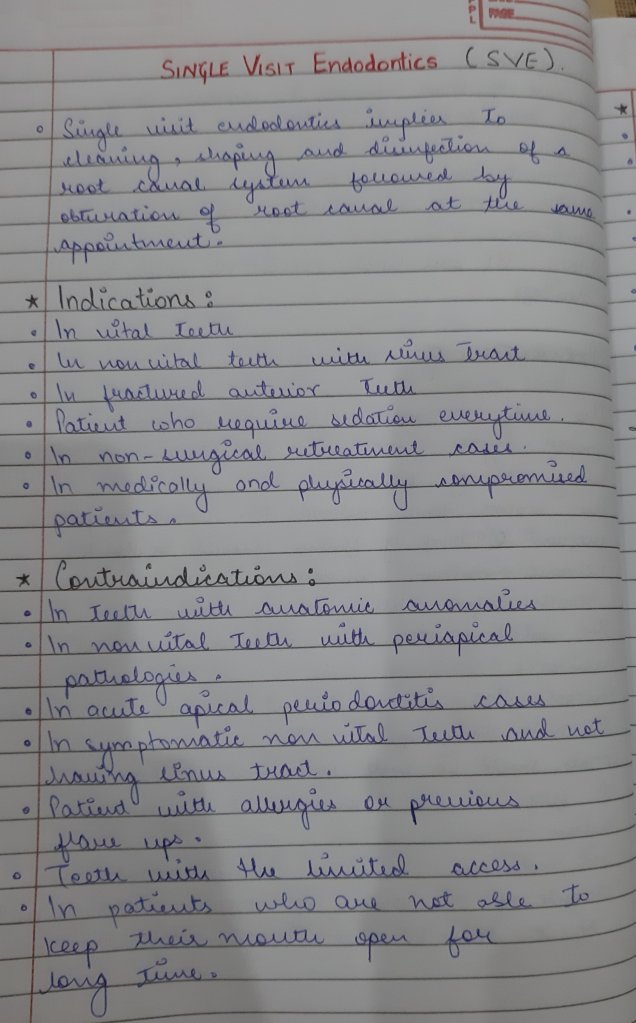 PAGE
SINGLE VISIT Endodontics (SVE).
• Single visit endodontics implies to
cleaning, shaping and disinfection of a
root canal system followed by
obturation of root canal at the same
appointment.
* Indications:
• In vital teeth
• In nonvital teeth with sinus tract
• In fractured anterior teeth
• Patient who require sedation everytime.
• In non-surgical retreatment cases.
• In medically and physically compromised
patients.
* Contraindications:
• In teeth with anatomic anomalies
• In nonvital teeth with periapical
pathologies.
• In acute apical periodontitis cases
• In symptomatic non vital teeth and not
having sinus tract.
• Patient with allergies or previous
flare ups.
• Teeth with the limited access.
• In patients who are not able to
keep their mouth open for
long time.